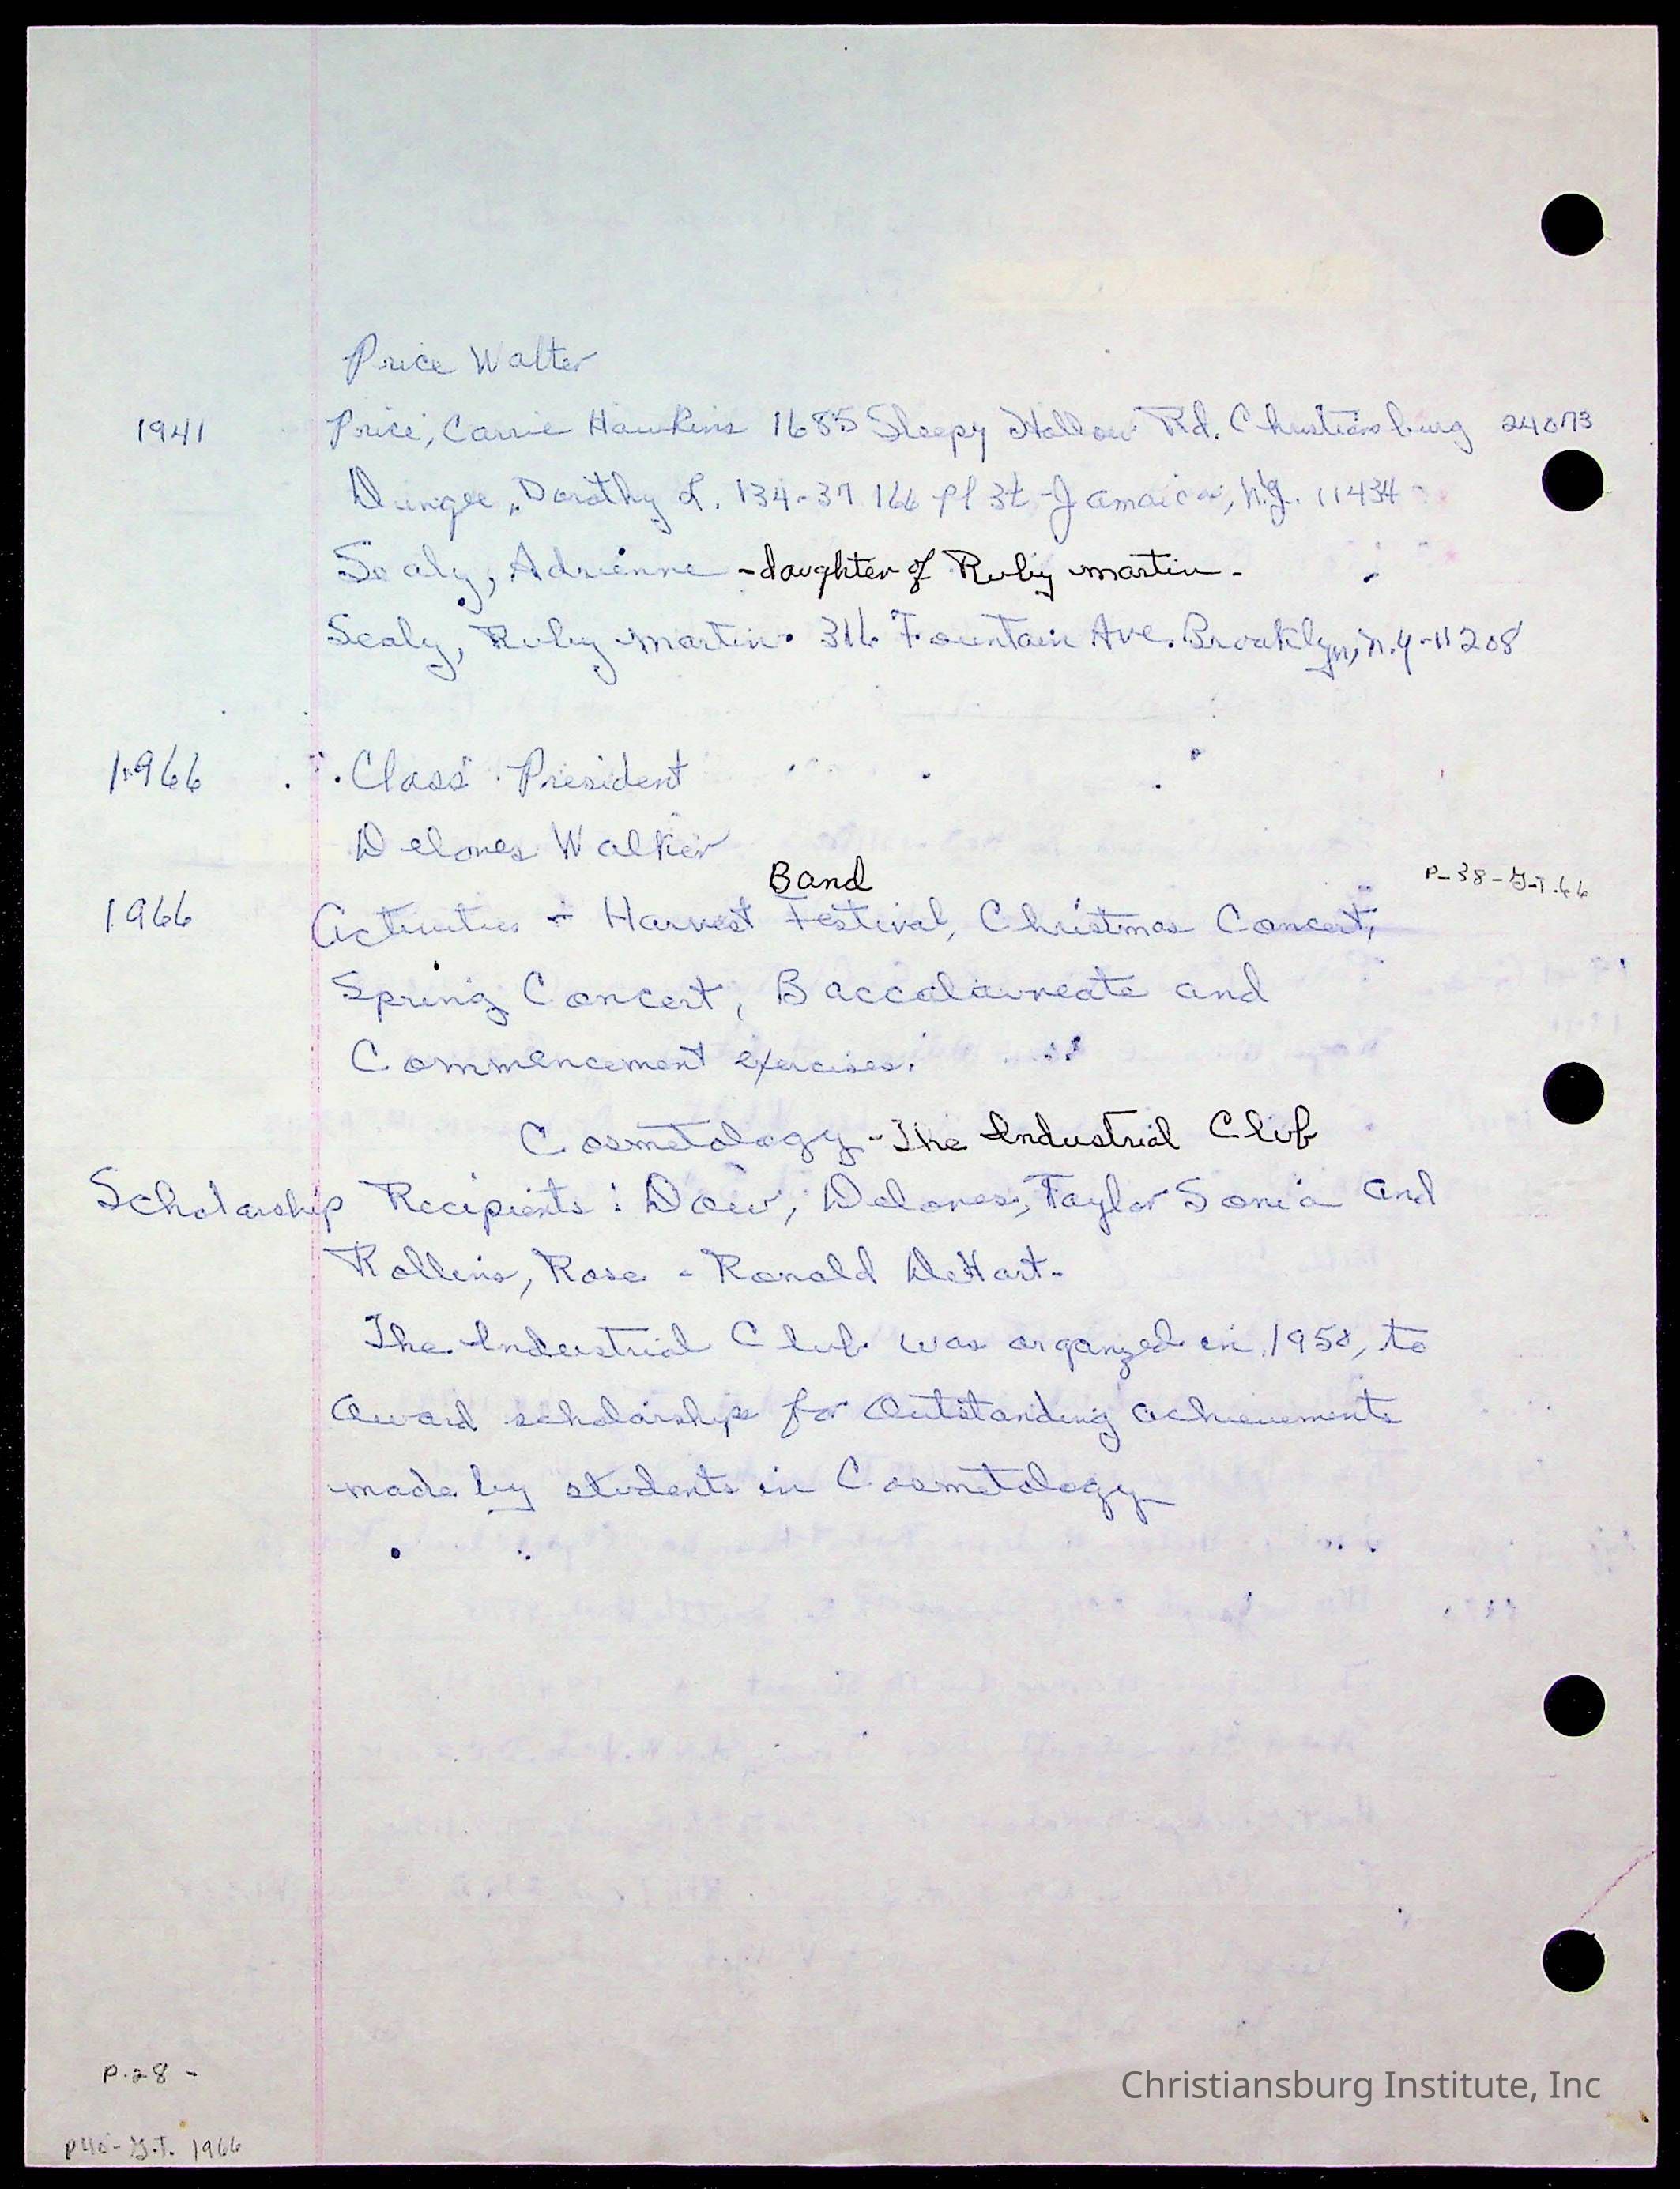 Price Walter
1941 Price, Carrie Hawkins 1685 Sleepy Hollow Rd. Christiansburg 24073
Dungee, Dorothy L. 134-37 166 Pl 3t - Jamaica, N.Y. 11434
Sealy, Adrienne - daughter of Ruby Martin -
Sealy, Ruby Martin. 316 Fountain Ave. Brooklyn, N.Y - 11208
1966 Class President
Delones Walker
Band
P-38-G.T.66
1966 Activities - Harvest Festival, Christmas Concert,
Spring Concert, Baccalaureate and
Commencement exercises.
Cosmetology - The Industrial Club
Scholarship Recipients: Dow, Delones, Taylor Sonia and
Rollins, Rose - Ronald DeHart-
The Industrial Club was organzed in 1950, to
award scholarships for Outstanding achievements
made by students in Cosmetology
P.28 -
P40-G.T. 1966
Christiansburg Institute, Inc